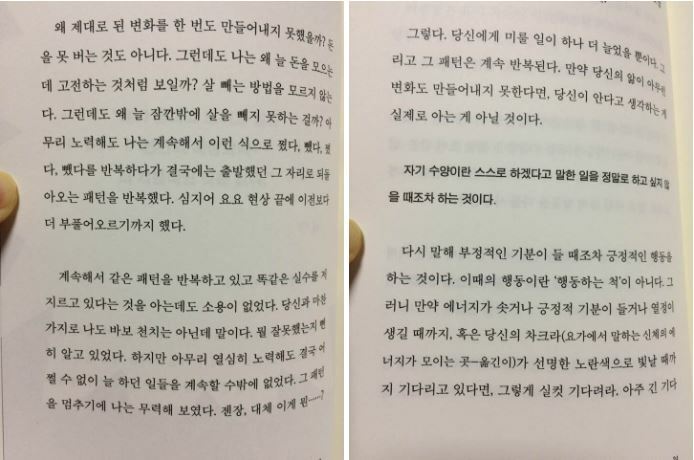 왜 제대로 된 변화를 한 번도 만들어내지 못했을까? 돈
을 못 버는 것도 아니다. 그런데도 나는 왜 늘 돈을 모으는
데 고전하는 것처럼 보일까? 살 빼는 방법을 모르지 않는
다. 그런데도 왜 늘 잠깐밖에 살을 빼지 못하는 걸까? 아
무리 노력해도 나는 계속해서 이런 식으로 쪘다, 뺐다, 쪘
다, 뺐다를 반복하다가 결국에는 출발했던 그 자리로 되돌
아오는 패턴을 반복했다. 심지어 요요 현상 끝에 이전보다
더 부풀어오르기까지 했다.
계속해서 같은 패턴을 반복하고 있고 똑같은 실수를 저
지르고 있다는 것을 아는데도 소용이 없었다. 당신과 마찬
가지로 나도 바보 천치는 아닌데 말이다. 뭘 잘못했는지 뻔
히 알고 있었다. 하지만 아무리 열심히 노력해도 결국 어
쩔 수 없이 늘 하던 일들을 계속할 수밖에 없었다. 그 패턴
을 멈추기에 나는 무력해 보였다. 젠장, 대체 이게 뭔……?
그렇다. 당신에게 미룰 일이 하나 더 늘었을 뿐이다. 그
리고 그 패턴은 계속 반복된다. 만약 당신의 앎이 아무런
변화도 만들어내지 못한다면, 당신이 안다고 생각하는 게
실제로 아는 게 아닐 것이다.
자기 수양이란 스스로 하겠다고 말한 일을 정말로 하고 싶지 않
을 때조차 하는 것이다.
다시 말해 부정적인 기분이 들 때조차 긍정적인 행동을
하는 것이다. 이때의 행동이란 ‘행동하는 척’이 아니다. 그
러니 만약 에너지가 솟거나 긍정적 기분이 들거나 열정이
생길 때까지, 혹은 당신의 차크라(요가에서 말하는 신체의 에
너지가 모이는 곳–옮긴이)가 선명한 노란색으로 빛날 때까
지 기다리고 있다면, 그렇게 실컷 기다려라. 아주 긴 기다